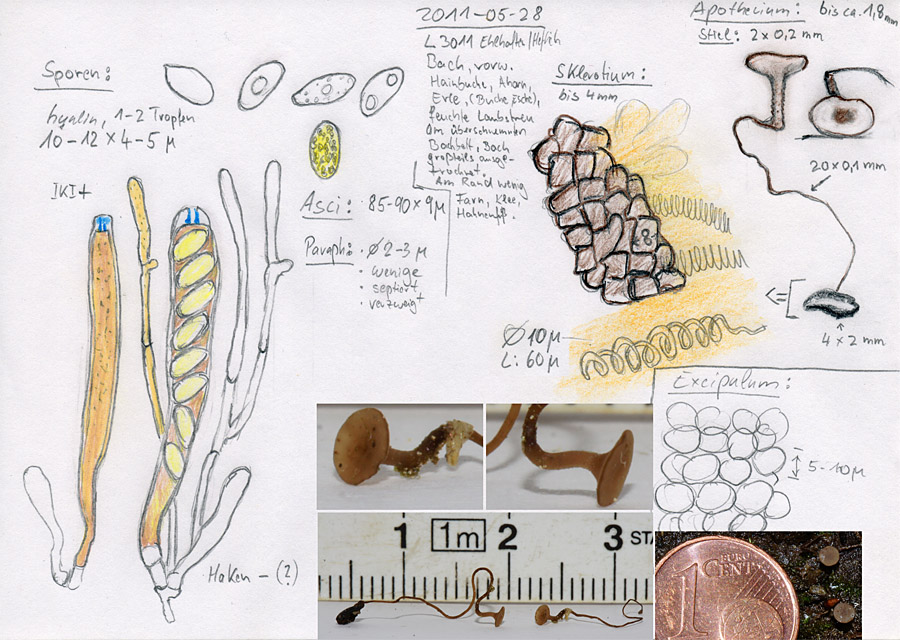 Sporen:
hyalin, 1-2 Tropfen
10-12 x 4-5 µ
IKI+
Haken - (?)
Asci: 85-90 x 9µ
Paraph: · Ø 2-3 µ
· wenige
· septiert
· verzweigt
2011-05-28
L3011
Bach, vorw.
Hainbuche, Ahorn,
Erle, (Buche,
feuchte Laubstreu
am überschwemmten
Bachbett, Bach
großteils ausge-
trocknet.
Am Rand wenig
Farn, Klee,
Hahnenf.
Sklerotium:
bis 4mm
Ø 10µ
L: 60µ
Apothecium: bis ca. 1,8mm
Stiel: 2 x 0,2 mm
20 x 0,1 mm
<=
4 x 2 mm
Excipulum:
5-10µ
1 1m 2 3 STA
1 EURO
CENT